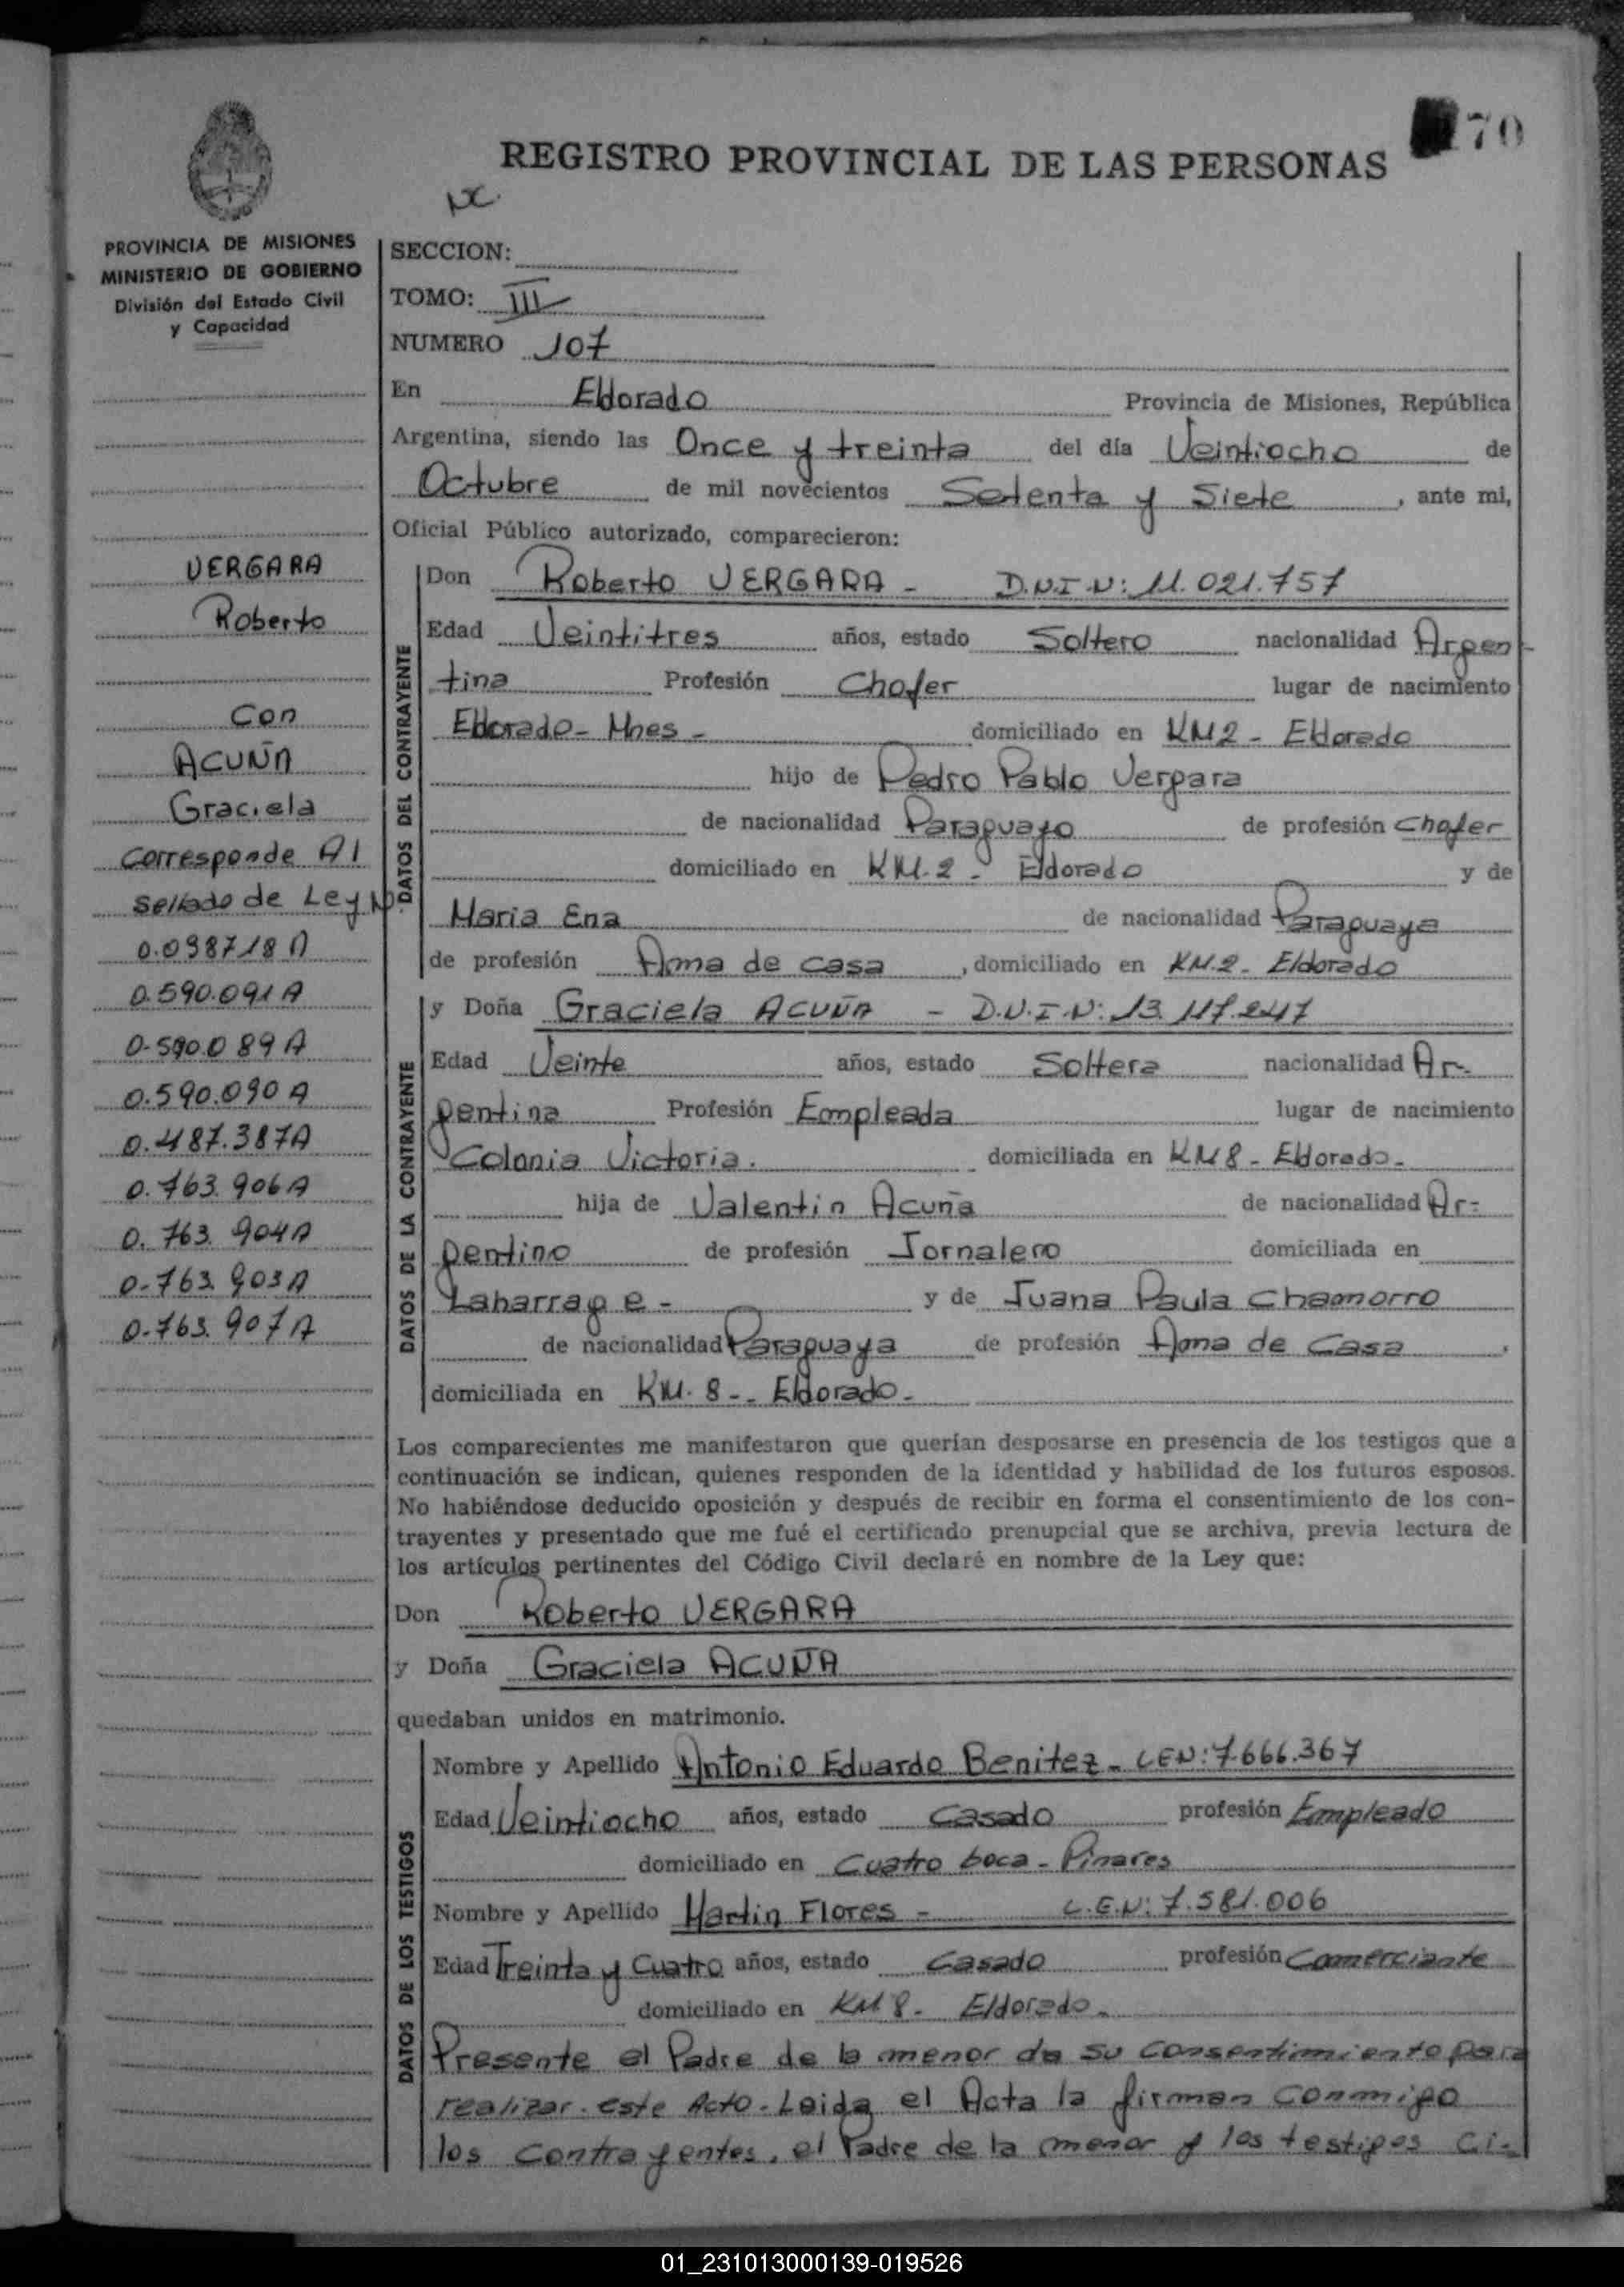 70
REGISTRO PROVINCIAL DE LAS PERSONAS
PROVINCIA DE MISIONES
MINISTERIO DE GOBIERNO
División del Estado Civil
y Capacidad
VERGARA
Roberto
Con
ACUÑA
Graciela
Corresponde Al
Sellado de Ley N
0.098718 A
0.590.091 A
0-590.089 A
0.590.090 A
0.487.387A
0.763.906A
0.763.904A
0-763.903A
0-763.907A
SECCION:
TOMO: III
NUMERO 107
En Eldorado Provincia de Misiones, República
Argentina, siendo las Once y treinta del día Veintiocho de
Octubre de mil novecientos Setenta y Siete, ante mi,
Oficial Público autorizado, comparecieron:
DATOS DEL CONTRAYENTE
Don Roberto VERGARA - D.N.I-N: 11.021.757
Edad Veintitres años, estado Soltero nacionalidad Argen-
tina Profesión Chofer lugar de nacimiento
Eldorado-Mnes- domiciliado en KM2-Eldorado
hijo de Pedro Pablo Vergara
de nacionalidad Paraguayo de profesión Chofer
domiciliado en KM.2- Eldorado y de
Maria Ena de nacionalidad Paraguaya
de profesión Ama de casa, domiciliado en KM.2-Eldorado
DATOS DE LA CONTRAYENTE
y Doña Graciela ACUÑA - D.N.I-N: 13.117.247
Edad Veinte años, estado Soltera nacionalidad Ar-
gentina Profesión Empleada lugar de nacimiento
Colonia Victoria. domiciliada en KM8-Eldorado-
hija de Valentin Acuña de nacionalidad Ar-
gentino de profesión Jornalero domiciliada en
Laharrage- y de Juana Paula Chamorro
de nacionalidad Paraguaya de profesión Ama de Casa,
domiciliada en KM.8-- Eldorado-
Los comparecientes me manifestaron que querían desposarse en presencia de los testigos que a
continuación se indican, quienes responden de la identidad y habilidad de los futuros esposos.
No habiéndose deducido oposición y después de recibir en forma el consentimiento de los con-
trayentes y presentado que me fué el certificado prenupcial que se archiva, previa lectura de
los artículos pertinentes del Código Civil declaré en nombre de la Ley que:
Don Roberto VERGARA
y Doña Graciela ACUÑA
quedaban unidos en matrimonio.
DATOS DE LOS TESTIGOS
Nombre y Apellido Antonio Eduardo Benitez- LEN:7.666.367
Edad Veintiocho años, estado Casado profesión Empleado
domiciliado en Cuatro boca-Pinares
Nombre y Apellido Martin Flores - L.E.N: 7.581.006
Edad Treinta y Cuatro años, estado Casado profesión Comerciante
domiciliado en KM 8- Eldorado-
Presente el Padre de la menor da su consentimiento para
realizar este Acto-Leida el Acta la firman conmigo
los contrayentes, el Padre de la menor y los testigos ci-
01_231013000139-019526